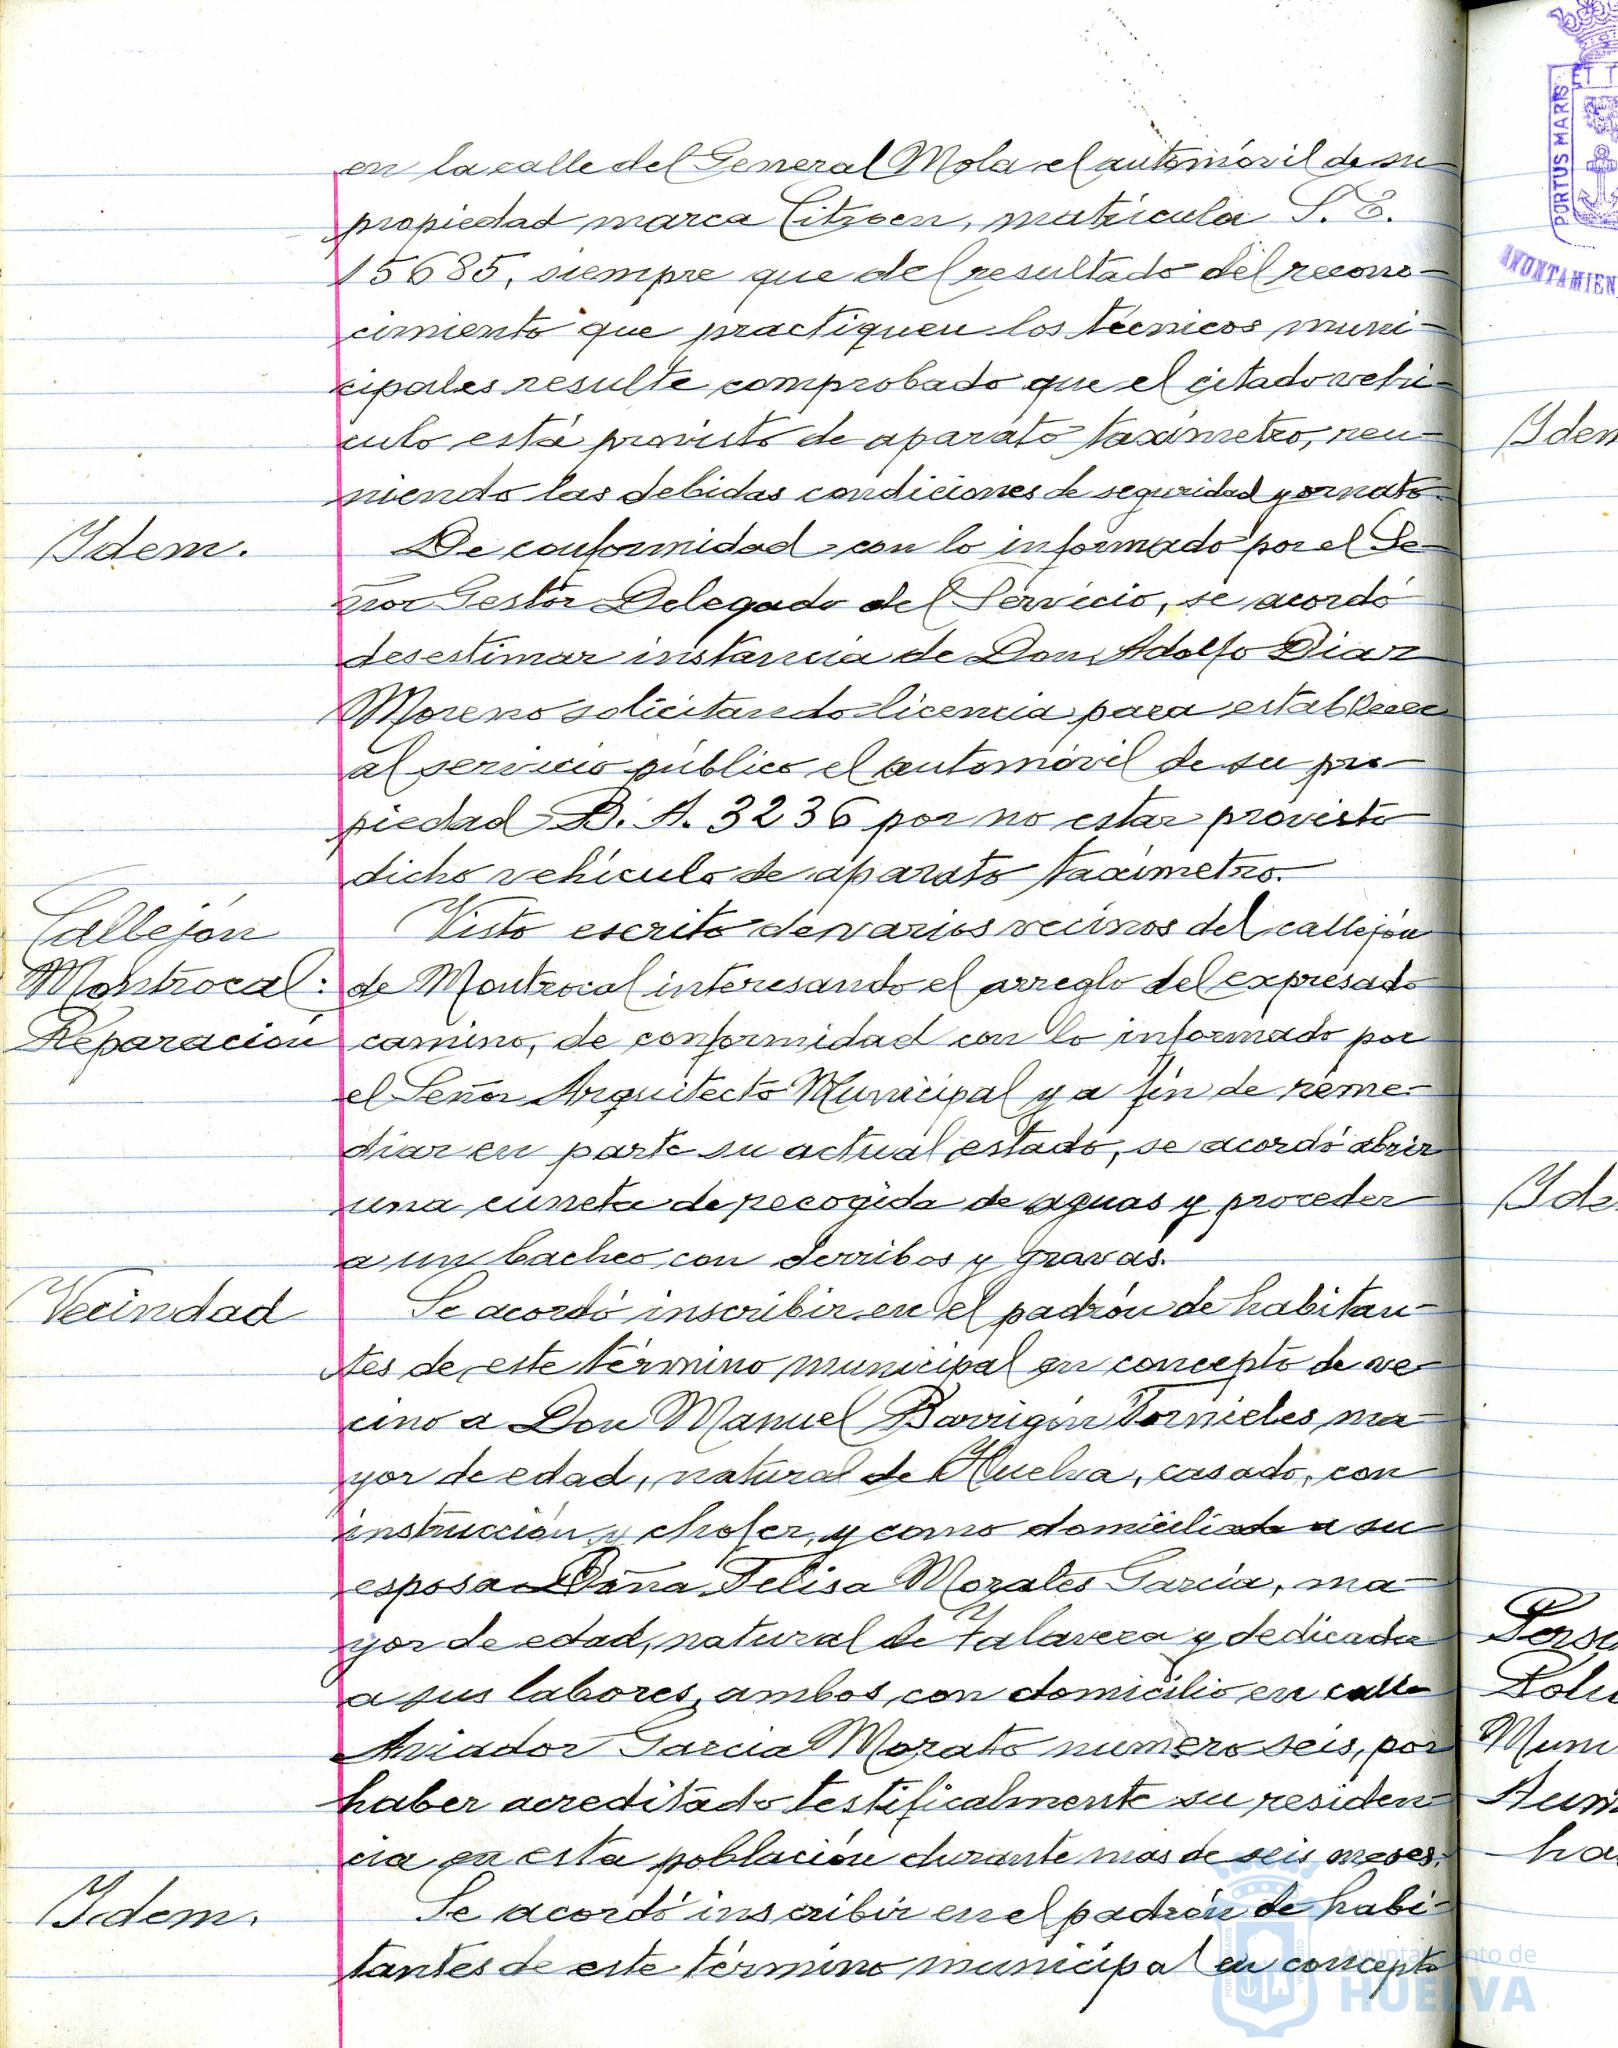 en la calle del General Mola el automóvil de su
propiedad marca Citroen, matrícula S. E.
15685, siempre que del resultado del recono-
cimiento que practiquen los técnicos muni-
cipales resulte comprobado que el citado vehi-
culo está provisto de aparato taxímetro, reu-
niendo las debidas condiciones de seguridad y ornato.
Idem.
De conformidad con lo informado por el Se-
ñor Gestor Delegado del Servicio, se acordó
desestimar instancia de Don Adolfo Diaz
Moreno solicitando licencia para establecer
al servicio público el automóvil de su pro
piedad B. A. 3236 por no estar provisto
dicho vehículo de aparato taxímetro.
Callejón
Montrocal:
Reparación
Visto escrito de varios vecinos del callejón
de Montrocal interesando el arreglo del expresado
camino, de conformidad con lo informado por
el Señor Arquitecto Municipal y a fin de reme-
diar en parte su actual estado, se acordó abrir
una cuneta de recogida de aguas y proceder
a un bacheo con derribos y gravas.
Vecindad
Se acordó inscribir en el padrón de habitan-
tes de este término municipal en concepto de ve-
cino a Don Manuel Barrigón Tornieles, ma
yor de edad, natural de Huelva, casado, con
instrucción y chofer, y como domiciliada a su
esposa Doña Felisa Morales García, ma-
yor de edad, natural de Talavera y dedicada
a sus labores, ambos con domicilio en calle
Aviador Garcia Morato numero seis, por
haber acreditado testificalmente su residen-
cia en esta población durante mas de seis meses.
Idem.
Se acordó inscribir en el padrón de habi-
tantes de este término municipal en concepto
PORTUS MARIS
ET T
AYUNTAMIEN
Idem
Ide
Muni
ha
Ayuntamiento de
HUELVA